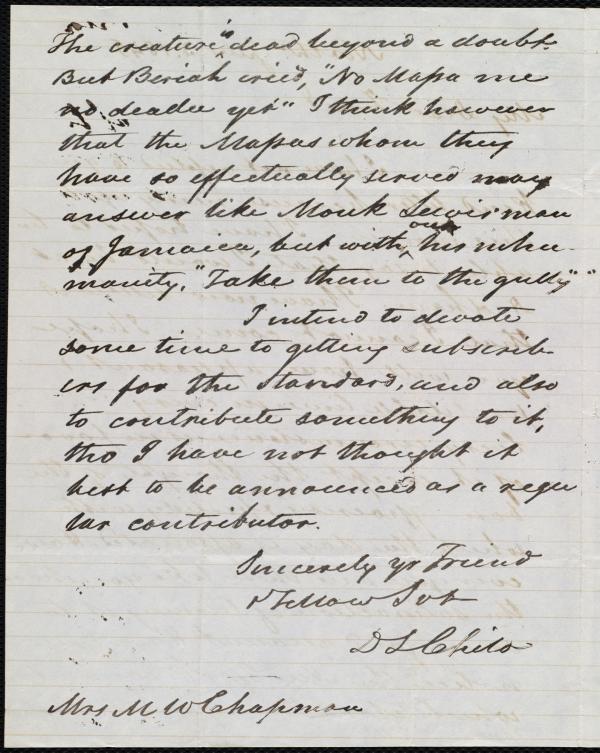 The creature is dead beyond a doubt.
But Beriah cried, "No Massa me
no deadee yet" I think however
that the Massas whom they
have so effectually served may
answer like Monk Lewis man
of Jamaica, but without his inhu-
manity, "Take them to the gully"
I intend to devote
some time to getting subscrib-
ers for the Standard, and also
to contribute something to it,
tho I have not thought it
best to be announced as a regu
lar contributor.
Sincerely yr Friend
& Fellow Svt
D L Child
Mrs M W Chapman